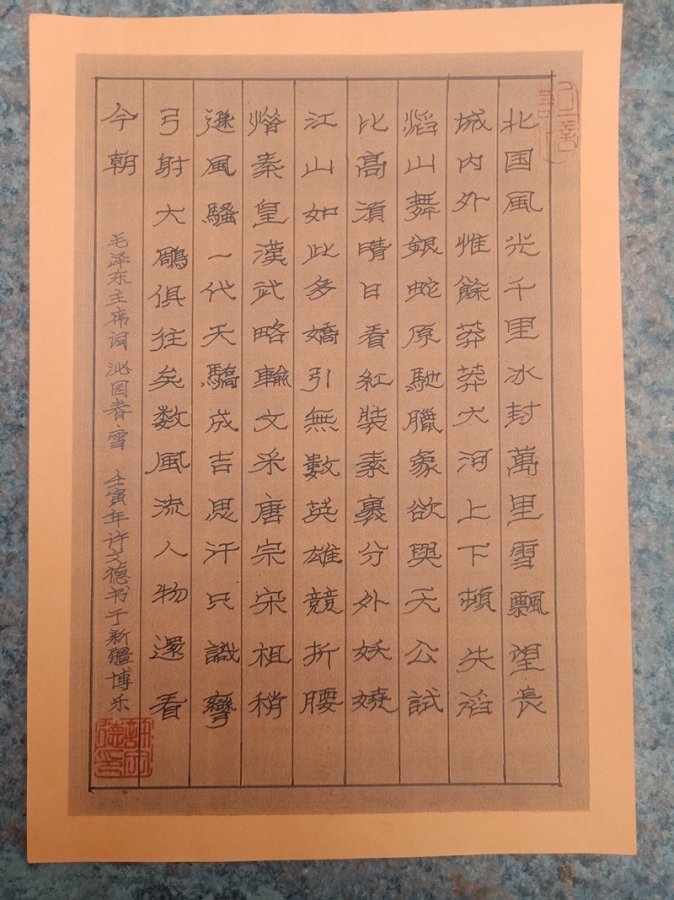 北国風光千里冰封萬里雪飄望長
城内外惟餘莽莽大河上下頓失滔
滔山舞銀蛇原馳臘象欲與天公試
比高須晴日看紅裝素裹分外妖嬈
江山如此多嬌引無數英雄競折腰
惜秦皇漢武略輸文采唐宗宋祖稍
遜風騷一代天驕成吉思汗只識彎
弓射大鵰俱往矣数風流人物還看
今朝
毛泽东主席词沁园春雪 壬寅年许文德书于新疆博乐
許文德印